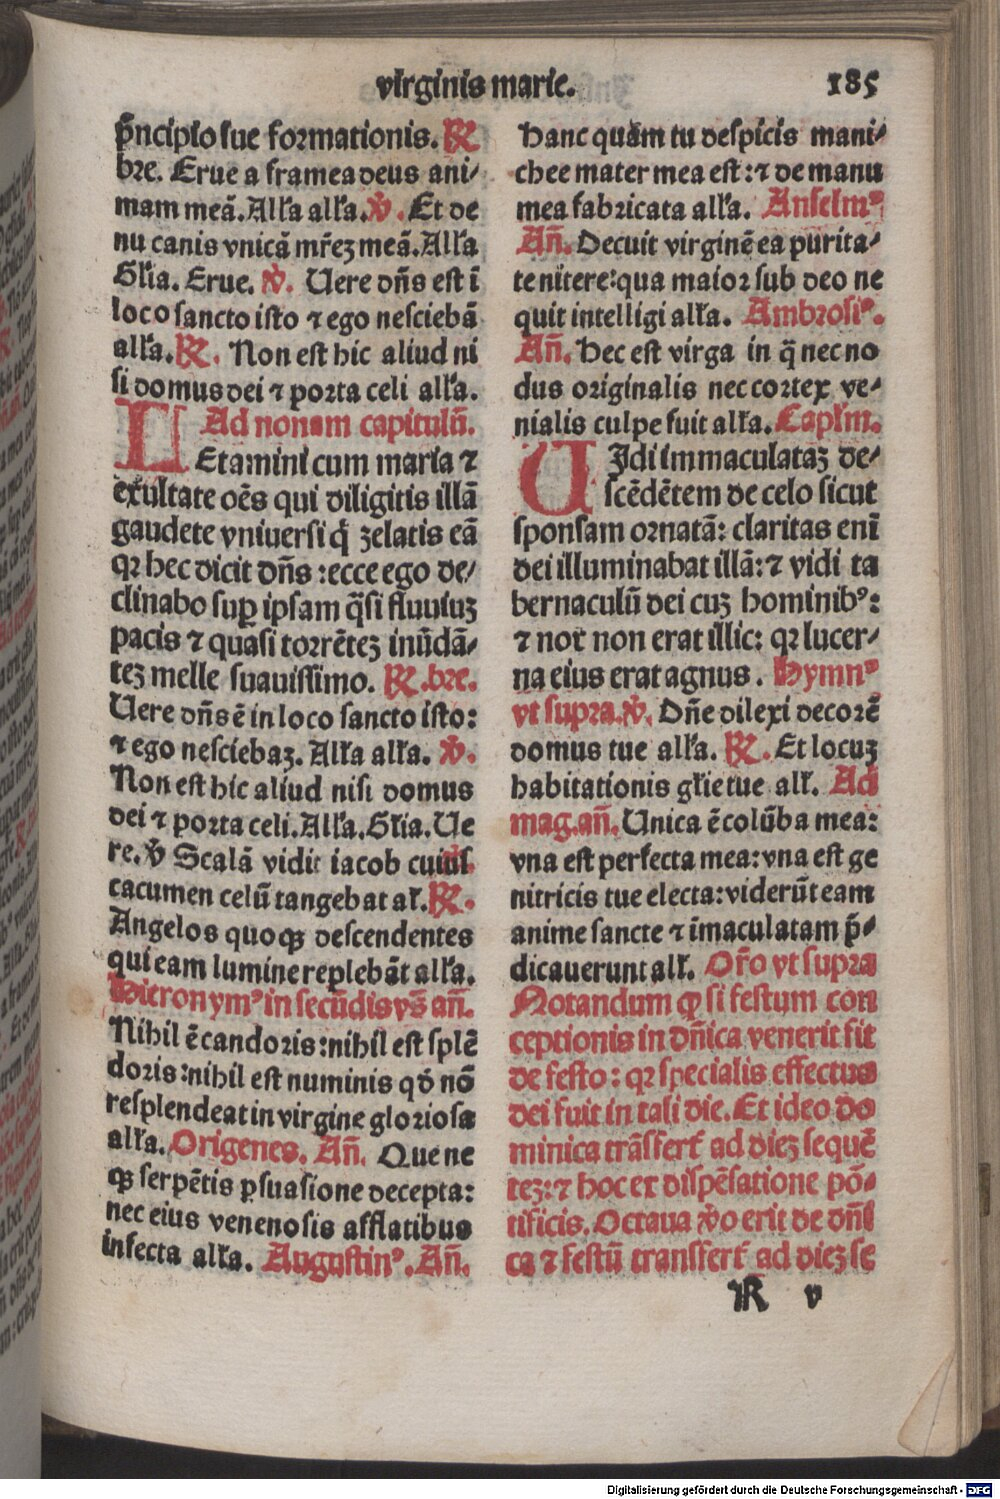 virginis marie. 185
p̄ncipio sue formationis. ℟
bre. Erue a framea deus ani⸗
mam meā. Alľa alľa. ℣. Et de
nu canis vnicā mr̄eꝫ meā. Alľa
Glĩa. Erue. ℣. Uere dn̄s est ī
loco sancto isto ⁊ ego nesciebā
alľa. ℟. Non est hic aliud ni
si domus dei ⁊ porta celi alľa.
Ad nonam capitulū.
LEtamini cum maria ⁊
exultate oēs qui diligitis illā
gaudete vniuersi q̇ zelatis eā
qꝛ hec dicit dn̄s : ecce ego de⸗
clinabo suꝑ ipsam q̄si fluuiuꝫ
pacis ⁊ quasi torrēteꝫ inūdā⸗
teꝫ melle suauissimo. ℟. bre.
Uere dn̄s ē in loco sancto isto:
⁊ ego nesciebaꝫ. Alľa alľa. ℣.
Non est hic aliud nisi domus
dei ⁊ porta celi. Alľa. Glĩa. Ue
re. ℣ Scalā vidit iacob cuius
cacumen celū tangebat aľ. ℟.
Angelos quoqꝫ descendentes
qui eam lumine replebāt alľa.
Hieronymꝰ in secūdis vs̄ an̄.
Nihil ē candoris: nihil est splē
doris: nihil est numinis qḋ nō
resplendeat in virgine gloriosa
alľa. Origenes. An̄. Que ne
qꝫ serpētis ꝑsuasione decepta:
nec eius venenosis afflatibus
infecta alľa. Augustinꝰ. An̄.
Hanc quam tu despicis mani⸗
chee mater mea est: ⁊ de manu
mea fabricata alľa. Anselmꝰ
An̄. Decuit virginē ea purita⸗
te nitere: qua maior sub deo ne
quit intelligi alľa. Ambrosiꝰ.
An̄. Hec est virga in q̄ nec no
dus originalis nec cortex ve⸗
nialis culpe fuit alľa. Capľm.
UIdi immaculataꝫ de⸗
scēdētem de celo sicut
sponsam ornatā: claritas enī
dei illuminabat illā: ⁊ vidi ta
bernaculū dei cuꝫ hominibꝰ:
⁊ nox non erat illic: qꝛ lucer⸗
na eius erat agnus. Hymnꝰ
vt supra. ℣. Dn̄e dilexi decorē
domus tue alľa. ℟. Et locuꝫ
habitationis gľie tue alľ. Ad
mag. an̄. Unica ē colūba mea:
vna est perfecta mea: vna est ge
nitricis tue electa: viderūt eam
anime sancte ⁊ īmaculatam p̄⸗
dicauerunt alľ. Or̄o vt supra
Notandum qꝙ si festum con
ceptionis in dn̄ica venerit fit
de festo: qꝛ specialis effectus
dei fuit in tali die. Et ideo do
minica trāsfert̉ ad dieꝫ sequē
teꝫ: ⁊ hoc ex dispēsatione pō⸗
tificis. Octaua v̇o erit de dn̄i
ca ⁊ festū transfert̉ ad dieꝫ se
R v
Digitalisierung gefördert durch die Deutsche Forschungsgemeinschaft - DFG